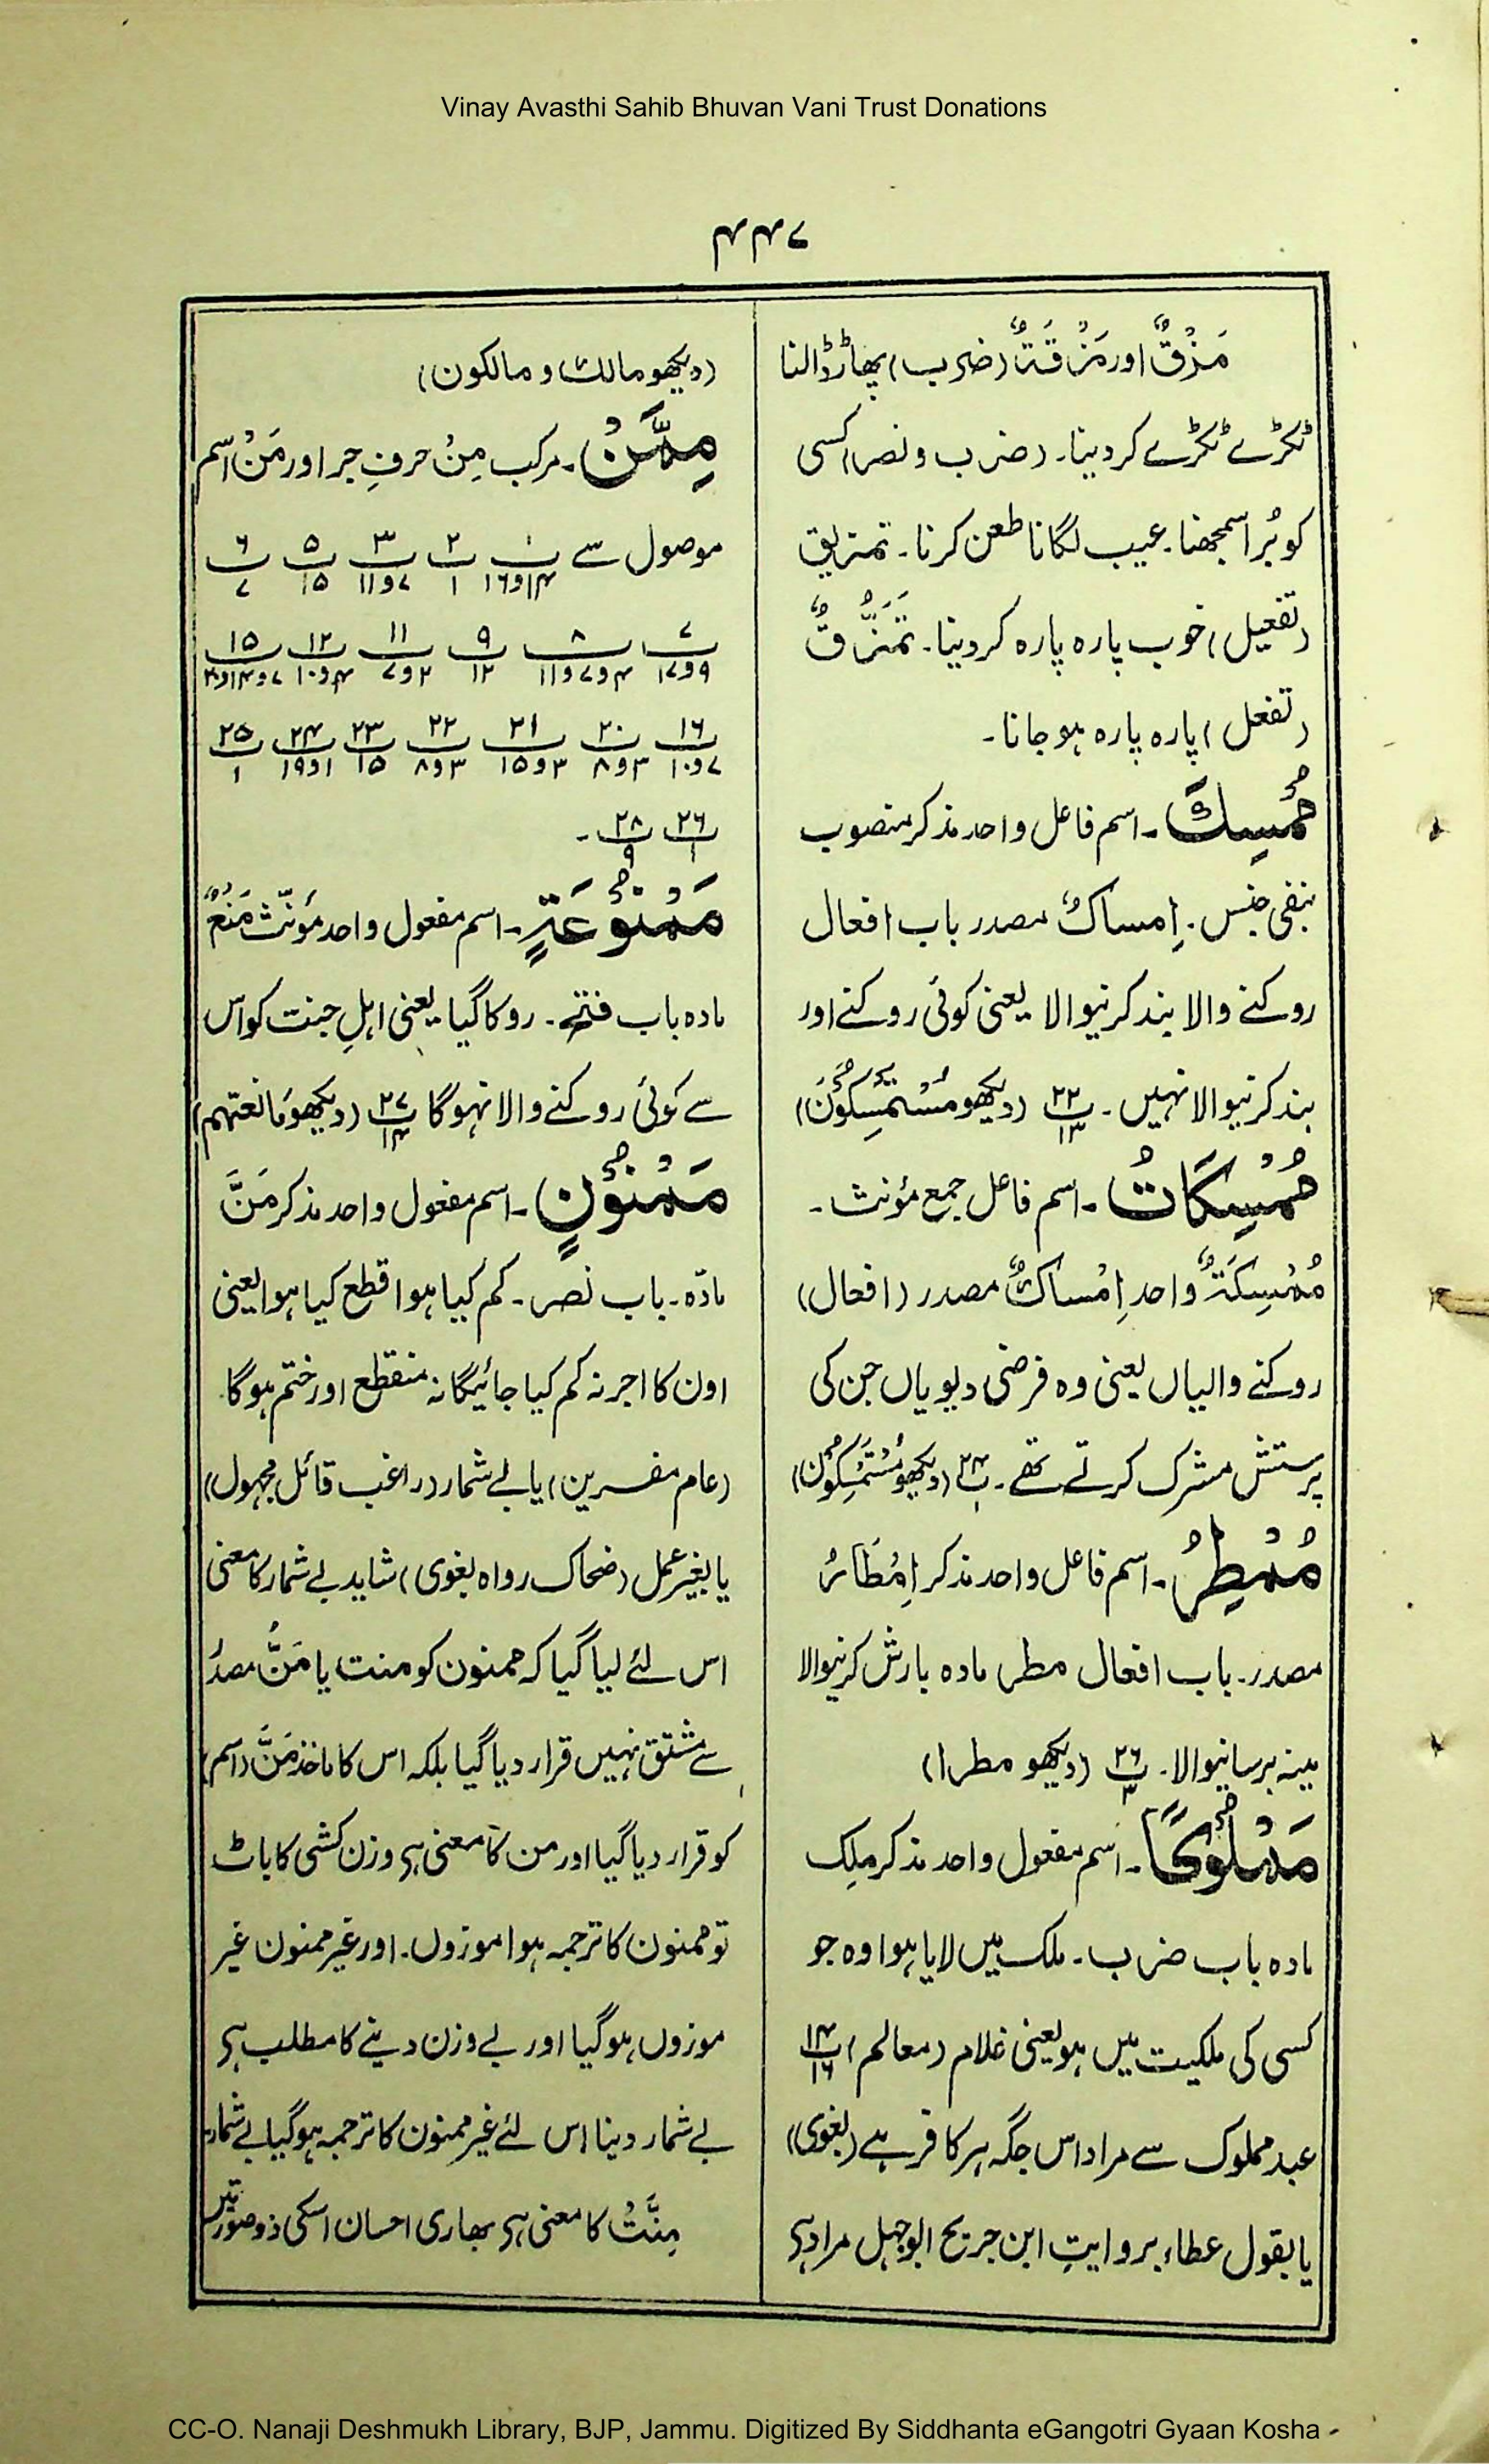 Vinay Avasthi Sahib Bhuvan Vani Trust Donations
۴۴۷
مَزْقٌ اور مَزْقَةٌ (ضرب) پھاڑ ڈالنا
ٹکڑے ٹکڑے کر دینا۔ (ضرب و نصر) کسی
کو بُرا سمجھنا۔ عیب لگانا طعن کرنا۔ تمزیق
(تفعیل) خوب پارہ پارہ کر دینا۔ تَمَزُّقٌ
(تفعل) پارہ پارہ ہو جانا۔
مُمْسِكَ۔ اسم فاعل واحد مذکر منصوب
بنفی جنس۔ اِمساكٌ مصدر باب افعال
روکنے والا بند کرنیوالا یعنی کوئی روکنے اور
بند کرنیوالا نہیں۔ ۲۲/۱۳ (دیکھو مُسْتَمْسِكُوْنَ)
مُمْسِكَاتُ۔ اسم فاعل جمع مؤنث۔
مُمْسِكَةٌ واحد اِمْسَاكٌ مصدر (افعال)
روکنے والیاں یعنی وہ فرضی دیویاں جن کی
پرستش مشرک کرتے تھے۔ ۲۴/۱ (دیکھو مُسْتَمْسِكُوْنَ)
مُمْطِرُ۔ اسم فاعل واحد مذکر اِمْطَارٌ
مصدر۔ باب افعال مطر مادہ بارش کرنیوالا
مینہ برسانیوالا۔ ۲۶/۳ (دیکھو مطرا)
مَمْلُوْكًا۔ اسم مفعول واحد مذکر مِلک
مادہ باب ضرب۔ ملک میں لایا ہوا وہ جو
کسی کی ملکیت میں ہو یعنی غلام (معالم) ۱۴/۱۶
عبد مملوک سے مراد اس جگہ ہر کافر ہے (بغوی)
یا بقول عطاء بروایتِ ابن جریج ابوجہل مراد ہی
(دیکھو مالك و مالكون)
مِمَّنْ۔ مرکب مِنْ حرفِ جر اور مَنْ اسم
موصول سے ۱/۱۴و۱۶ ۲/۱ ۳/۷و۱۱ ۵/۱۵ ۶/۷
۷/۹و۱۷ ۸/۴و۷و۱۱ ۹/۱۲ ۱۱/۲و۷ ۱۲/۴و۱۰ ۱۵/۷و۱۴و۲۰
۱۶/۷و۱۰ ۲۰/۳و۸ ۲۱/۳و۱۵ ۲۲/۳و۸ ۲۳/۱۵ ۲۴/۱و۱۹ ۲۵/۱
۲۶/۱ ۲۸/۹۔
مَمْنُوْعَةٍ۔ اسم مفعول واحد مؤنّث مَنْعٌ
مادہ باب فتح۔ روکا گیا یعنی اہلِ جنت کو اس
سے کوئی روکنے والا نہوگا ۲۷/۱۴ (دیکھو مانعتہم)
مَمْنُوْنٍ۔ اسم مفعول واحد مذکر مَنَّ
مادّہ۔ باب نصر۔ کم کیا ہوا قطع کیا ہوا یعنی
اون کا اجر نہ کم کیا جائیگا نہ منقطع اور ختم ہوگا۔
(عام مفسرین) یا بے شمار (راغب قائل مجہول)
یا بغیر عمل (ضحاک رواہ بغوی) شاید بے شمار کا معنی
اس لئے لیا گیا کہ ممنون کو منت یا مَنٌّ مصدر
سے مشتق نہیں قرار دیا گیا بلکہ اس کا ماخذ مَنَّ (اسم)
کو قرار دیا گیا اور من کا معنی ہی وزن کشی کا باٹ
تو ممنون کا ترجمہ ہوا موزوں۔ اور غیر ممنون غیر
موزوں ہو گیا اور بے وزن دینے کا مطلب ہی
بے شمار دینا اس لئے غیر ممنون کا ترجمہ ہو گیا بے شمار۔
مِنَّتْ کا معنی ہی بھاری احسان اسکی دو صورتیں
CC-O. Nanaji Deshmukh Library, BJP, Jammu. Digitized By Siddhanta eGangotri Gyaan Kosha